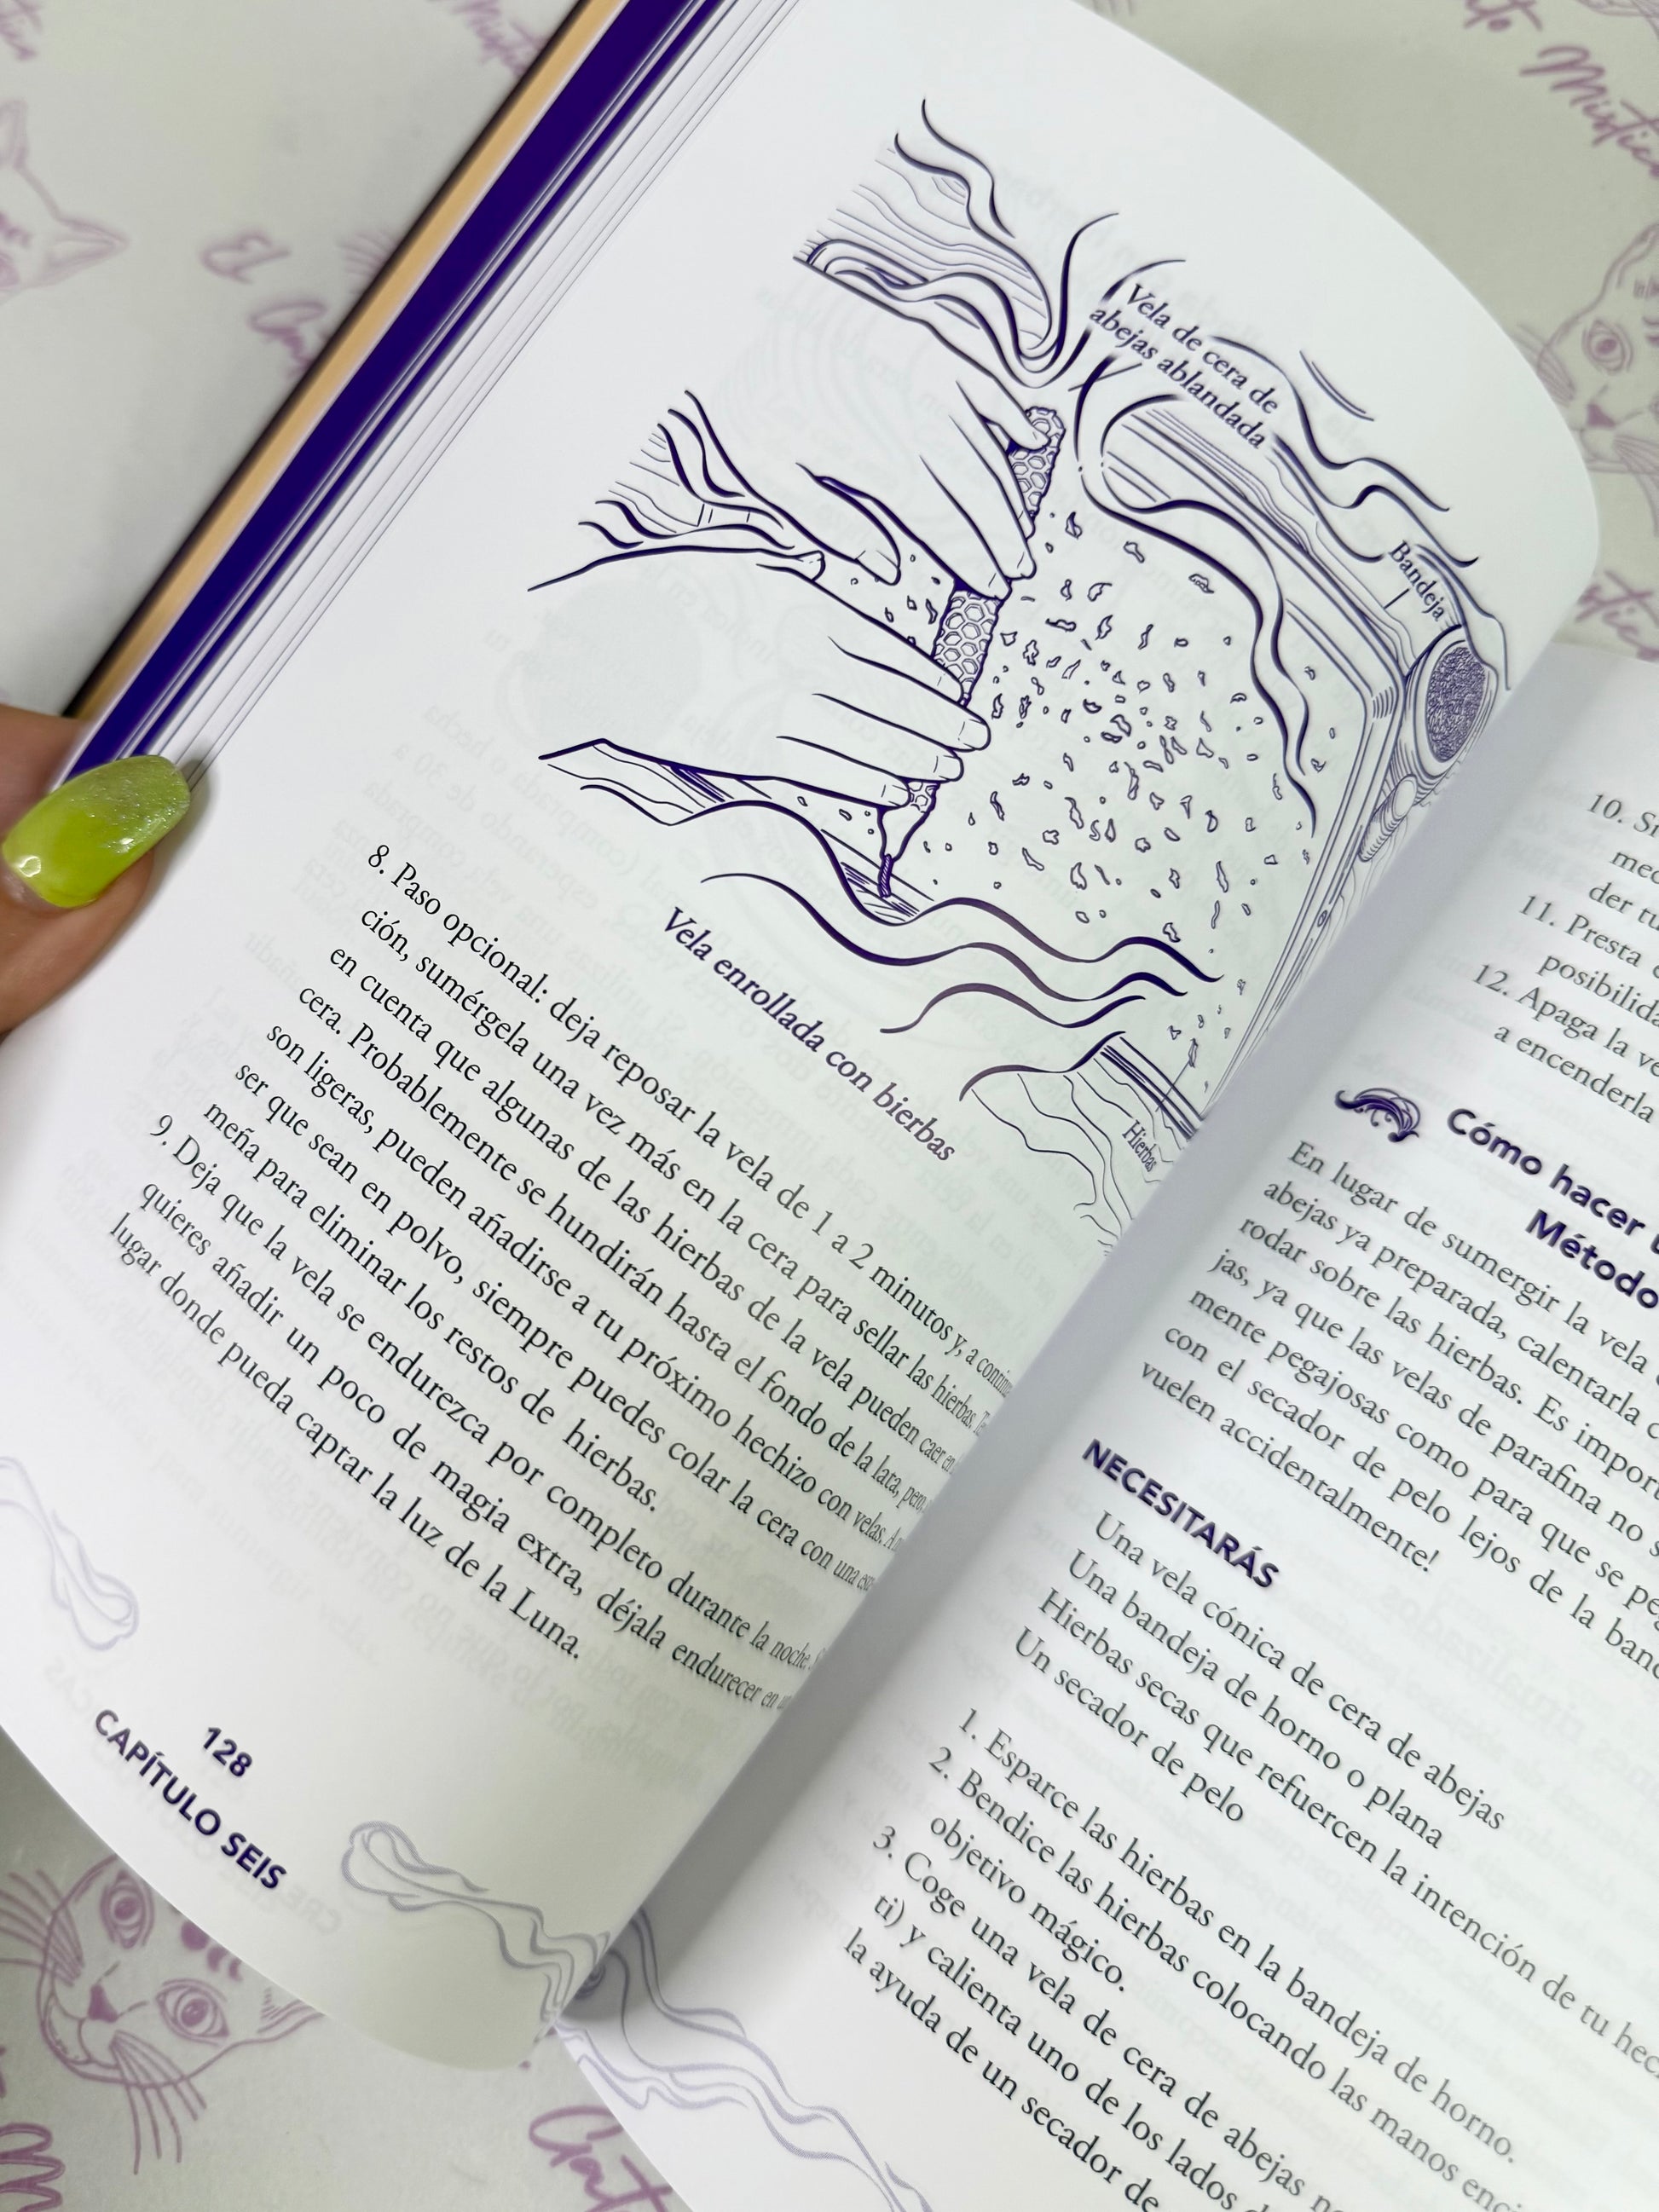 Vela de cera de
abejas ablandada
Bandeja
Hierbas
Vela enrollada con hierbas
8. Paso opcional: deja reposar la vela de 1 a 2 minutos y, a continua-
ción, sumérgela una vez más en la cera para sellar las hierbas.
en cuenta que algunas de las hierbas de la vela pueden caer en
cera. Probablemente se hundirán hasta el fondo de la lata, pero,
son ligeras, pueden añadirse a tu próximo hechizo con velas. A
ser que sean en polvo, siempre puedes colar la cera con una
meña para eliminar los restos de hierbas.
9. Deja que la vela se endurezca por completo durante la noche.
quieres añadir un poco de magia extra, déjala endurecer en un
lugar donde pueda captar la luz de la Luna.
128
CAPÍTULO SEIS
10. Si
med
der tu
11. Presta
posibilida
12. Apaga la ve
a encenderla
Cómo hacer
Método
En lugar de sumergir la vela
abejas ya preparada, calentarla
rodar sobre las hierbas. Es import
jas, ya que las velas de parafina no
mente pegajosas como para que se peg
con el secador de pelo lejos de la band
vuelen accidentalmente!
NECESITARÁS
Una vela cónica de cera de abejas
Una bandeja de horno o plana
Hierbas secas que refuercen la intención de tu hec
Un secador de pelo
1. Esparce las hierbas en la bandeja de horno.
2. Bendice las hierbas colocando las manos enci
objetivo mágico.
3. Coge una vela de cera de abejas
ti) y calienta uno de los lados
la ayuda de un secador de
El Gato Místico